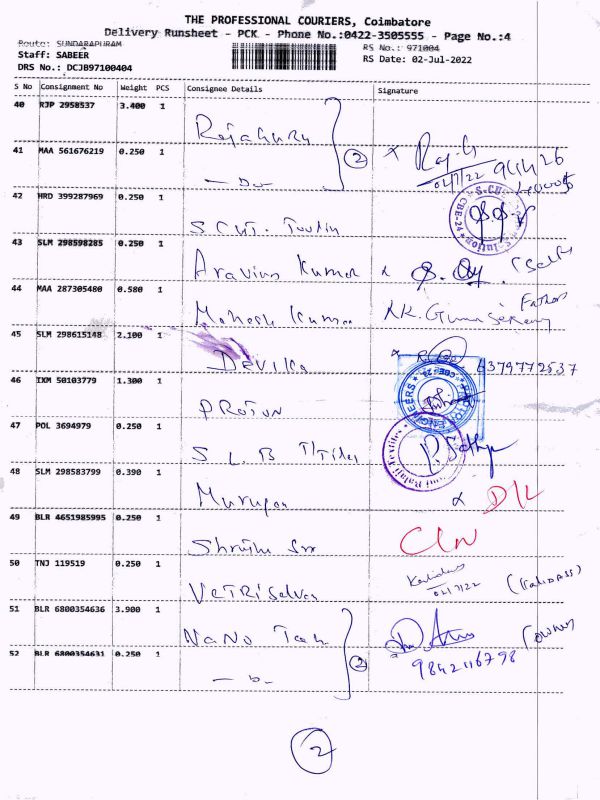 THE PROFESSIONAL COURIERS, Coimbatore
Delivery Runsheet - PCK - Phone No.:0422-3505555 - Page No.:4
Route: SUNDARAPURAM RS No.: 971004
Staff: SABEER RS Date: 02-Jul-2022
DRS No.: DCJB97100404
S No Consignment No Weight PCS Consignee Details Signature
40 RJP 2958537 3.400 1
Rajaguru
41 MAA 561676219 0.250 1 2
02/7/22
42 HRD 399287969 0.250 1
43 SLM 298598285 0.250 1
Aravind Kumar
44 MAA 287305480 0.580 1 Father
Mahesh Kumar
45 SLM 298615148 2.100 1
Devika 6379772537
46 IXM 50103779 1.300 1
PROTON
47 POL 3694979 0.250 1
S L B
48 SLM 298583799 0.390 1
Murugan D/L
49 BLR 4651985995 0.250 1
50 TNJ 119519 0.250 1
VETRISelvan 02/7/22 (Kalidass)
51 BLR 6800354636 3.900 1
NANO Tech (owner)
52 BLR 6800354631 0.250 1 2 9842116798
2